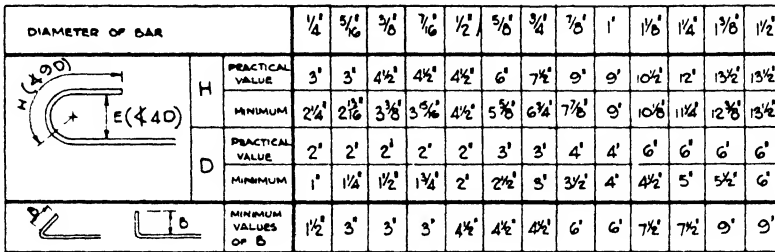 DIAMETER OF BAR 1/4" 5/16" 3/8" 7/16" 1/2" 5/8" 3/4" 7/8" 1" 1 1/8" 1 1/4" 1 3/8" 1 1/2"
H (∢ 9D)
E (∢ 4D)
H
PRACTICAL VALUE 3" 3" 4 1/2" 4 1/2" 4 1/2" 6" 7 1/2" 9" 9" 10 1/2" 12" 13 1/2" 13 1/2"
MINIMUM 2 1/4" 2 13/16" 3 3/8" 3 15/16" 4 1/2" 5 5/8" 6 3/4" 7 7/8" 9" 10 1/8" 11 1/4" 12 3/8" 13 1/2"
D
PRACTICAL VALUE 2" 2" 2" 2" 2" 3" 3" 4" 4" 6" 6" 6" 6"
MINIMUM 1" 1 1/4" 1 1/2" 1 3/4" 2" 2 1/2" 3" 3 1/2" 4" 4 1/2" 5" 5 1/2" 6"
B B
MINIMUM VALUES OF B 1 1/2" 3" 3" 3" 4 1/2" 4 1/2" 4 1/2" 6" 6" 7 1/2" 7 1/2" 9" 9"